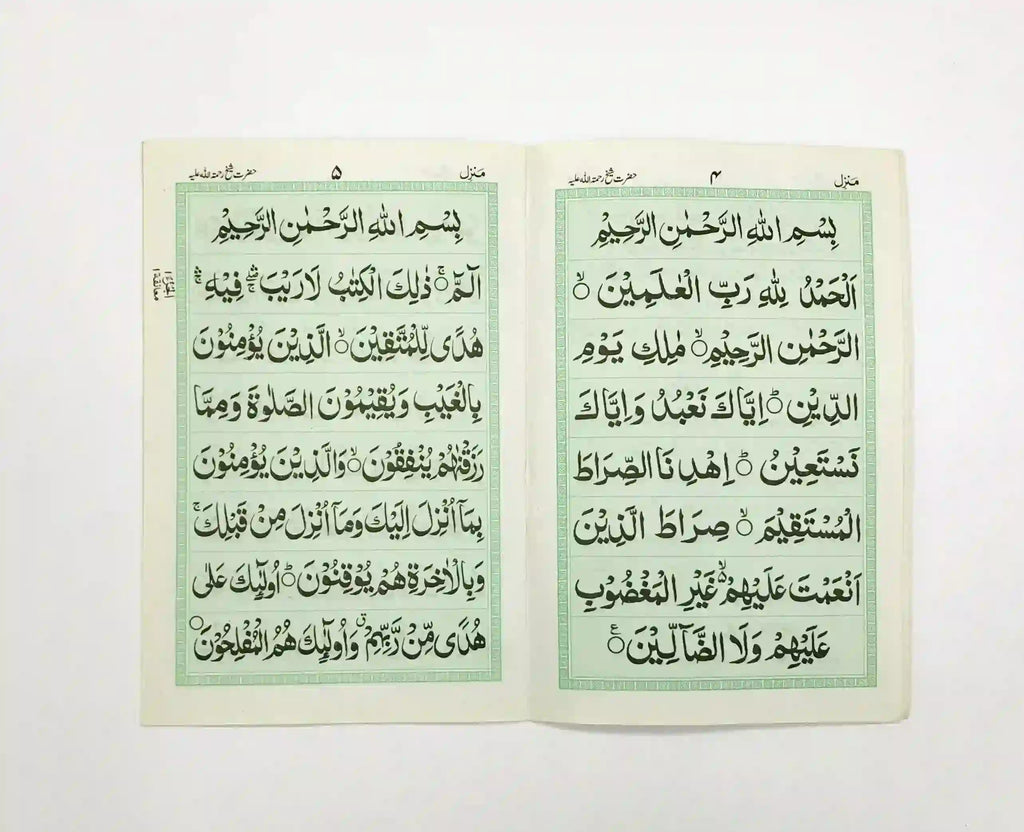 مَنزِل ۴ حضرت شیخ رحمۃ اللہ علیہ
بِسْمِ اللهِ الرَّحْمٰنِ الرَّحِيْمِ
اَلْحَمْدُ لِلّٰهِ رَبِّ الْعٰلَمِيْنَ ۙ
الرَّحْمٰنِ الرَّحِيْمِ ۙ مٰلِكِ يَوْمِ
الدِّيْنِ ؕ اِيَّاكَ نَعْبُدُ وَاِيَّاكَ
نَسْتَعِيْنُ ؕ اِهْدِنَا الصِّرَاطَ
الْمُسْتَقِيْمَ ۙ صِرَاطَ الَّذِيْنَ
اَنْعَمْتَ عَلَيْهِمْ ۙ۬ غَيْرِ الْمَغْضُوْبِ
عَلَيْهِمْ وَلَا الضَّآلِّيْنَ ۠
مَنزِل ۵ حضرت شیخ رحمۃ اللہ علیہ
بِسْمِ اللهِ الرَّحْمٰنِ الرَّحِيْمِ
الٓمّٓ ۚ ذٰلِكَ الْكِتٰبُ لَا رَيْبَ ۛۖ فِيْهِ ۛۚ
هُدًى لِّلْمُتَّقِيْنَ ۙ الَّذِيْنَ يُؤْمِنُوْنَ
بِالْغَيْبِ وَيُقِيْمُوْنَ الصَّلٰوةَ وَمِمَّا
رَزَقْنٰهُمْ يُنْفِقُوْنَ ۙ وَالَّذِيْنَ يُؤْمِنُوْنَ
بِمَآ اُنْزِلَ اِلَيْكَ وَمَآ اُنْزِلَ مِنْ قَبْلِكَ ۚ
وَبِالْاٰخِرَةِ هُمْ يُوْقِنُوْنَ ؕ اُولٰٓئِكَ عَلٰى
هُدًى مِّنْ رَّبِّهِمْ ۗ وَاُولٰٓئِكَ هُمُ الْمُفْلِحُوْنَ ○